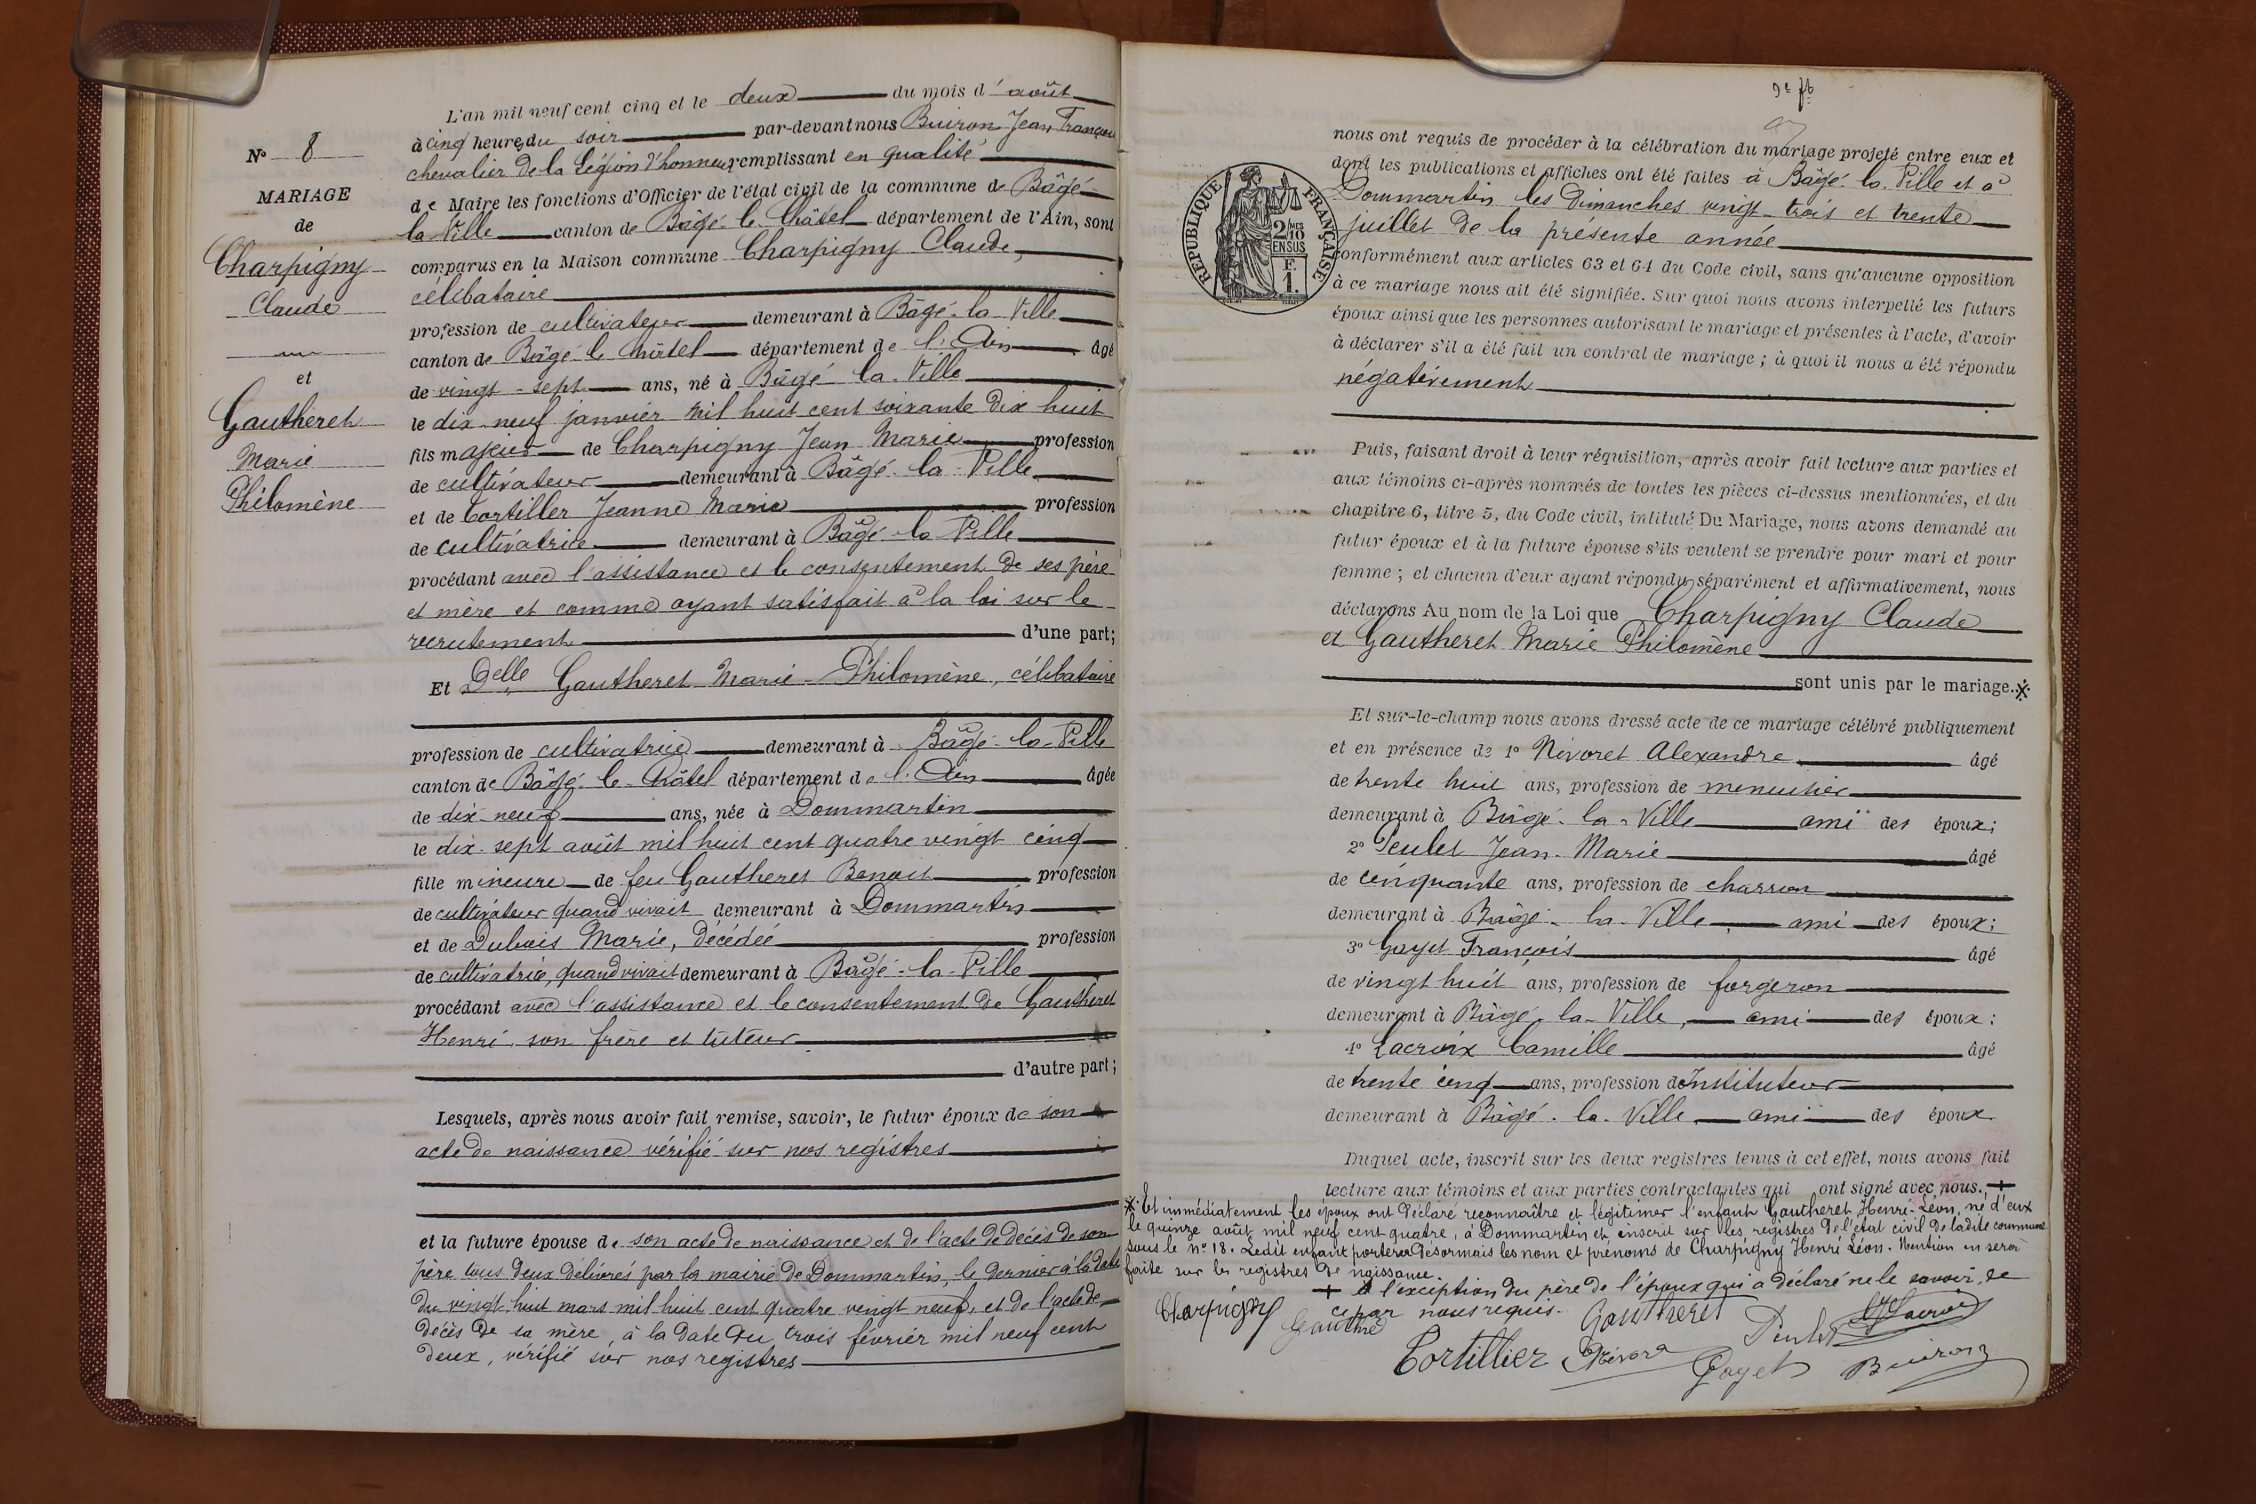 L'an mil neuf cent cinq et le deux du mois d'août
à cinq heures du soir par-devant nous Buiron Jean François
chevalier de la Légion d'honneur remplissant en qualité
de Maire les fonctions d'Officier de l'état civil de la commune de Bâgé-
la-Ville canton de Bâgé-le-Châtel département de l'Ain, sont
comparus en la Maison commune Charpigny Claude,
célibataire
profession de cultivateur demeurant à Bâgé-la-Ville
canton de Bâgé-le-Châtel département de l'Ain âgé
de vingt-sept ans, né à Bâgé-la-Ville
le dix-neuf janvier mil huit cent soixante dix huit
fils majeur de Charpigny Jean Marie profession
de cultivateur demeurant à Bâgé-la-Ville
et de Tortiller Jeanne Marie profession
de cultivatrice demeurant à Bâgé-la-Ville
procédant avec l'assistance et le consentement de ses père
et mère et comme ayant satisfait à la loi sur le
recrutement d'une part;
Et Delle Gautheret Marie-Philomène, célibataire
profession de cultivatrice demeurant à Bâgé-la-Ville
canton de Bâgé-le-Châtel département de l'Ain âgée
de dix-neuf ans, née à Dommartin
le dix-sept août mil huit cent quatre vingt cinq
fille mineure de feu Gautheret Benoit profession
de cultivateur quand vivait demeurant à Dommartin
et de Dubois Marie, décédée profession
de cultivatrice, quand vivait demeurant à Bâgé-la-Ville
procédant avec l'assistance et le consentement de Gautheret
Henri son frère et tuteur
d'autre part;
Lesquels, après nous avoir fait remise, savoir, le futur époux de son
acte de naissance vérifié sur nos registres
et la future épouse de son acte de naissance et de l'acte de décès de son
père tous deux délivrés par la mairie de Dommartin, le dernier à la date
du vingt huit mars mil huit cent quatre vingt neuf, et de l'acte de
décès de sa mère, à la date du trois février mil neuf cent
deux, vérifié sur nos registres
N° 8
MARIAGE
de
Charpigny
Claude
et
Gautheret
Marie
Philomène
nous ont requis de procéder à la célébration du mariage projeté entre eux et
dont les publications et affiches ont été faites à Bâgé-la-Ville et à
Dommartin les Dimanches vingt-trois et trente
juillet de la présente année
conformément aux articles 63 et 64 du Code civil, sans qu'aucune opposition
à ce mariage nous ait été signifiée. Sur quoi nous avons interpellé les futurs
époux ainsi que les personnes autorisant le mariage et présentes à l'acte, d'avoir
à déclarer s'il a été fait un contrat de mariage; à quoi il nous a été répondu
négativement
RÉPUBLIQUE FRANÇAISE
2/10 MES
EN SUS
F.
1.
Puis, faisant droit à leur réquisition, après avoir fait lecture aux parties et
aux témoins ci-après nommés de toutes les pièces ci-dessus mentionnées, et du
chapitre 6, titre 5, du Code civil, intitulé Du Mariage, nous avons demandé au
futur époux et à la future épouse s'ils veulent se prendre pour mari et pour
femme; et chacun d'eux ayant répondu séparément et affirmativement, nous
déclarons Au nom de la Loi que Charpigny Claude
et Gautheret Marie Philomène
sont unis par le mariage.
Et sur-le-champ nous avons dressé acte de ce mariage célébré publiquement
et en présence de 1° Névoret Alexandre âgé
de trente huit ans, profession de menuisier
demeurant à Bâgé-la-Ville ami des époux;
2° Peulet Jean-Marie âgé
de cinquante ans, profession de charron
demeurant à Bâgé-la-Ville ami des époux;
3° Gayet François âgé
de vingt huit ans, profession de forgeron
demeurant à Bâgé-la-Ville, ami des époux;
4° Lacroix Camille âgé
de trente cinq ans, profession d'Instituteur
demeurant à Bâgé-la-Ville ami des époux
Duquel acte, inscrit sur les deux registres tenus à cet effet, nous avons fait
lecture aux témoins et aux parties contractantes qui ont signé avec nous. +
Et immédiatement les époux ont déclaré reconnaître et légitimer l'enfant Gautheret Henri-Léon, né d'eux
le quinze août mil neuf cent quatre, à Dommartin et inscrit sur les registres de l'état civil de ladite commune
sous le N° 18. Ledit enfant portera désormais les nom et prénoms de Charpigny Henri Léon. Mention en sera
faite sur les registres de naissance.
+ à l'exception du père de l'époux qui a déclaré ne le savoir, de
ce par nous requis.
Charpigny Gautheret Lacroix
Peulet
Tortillier Névora Gayet Buiron